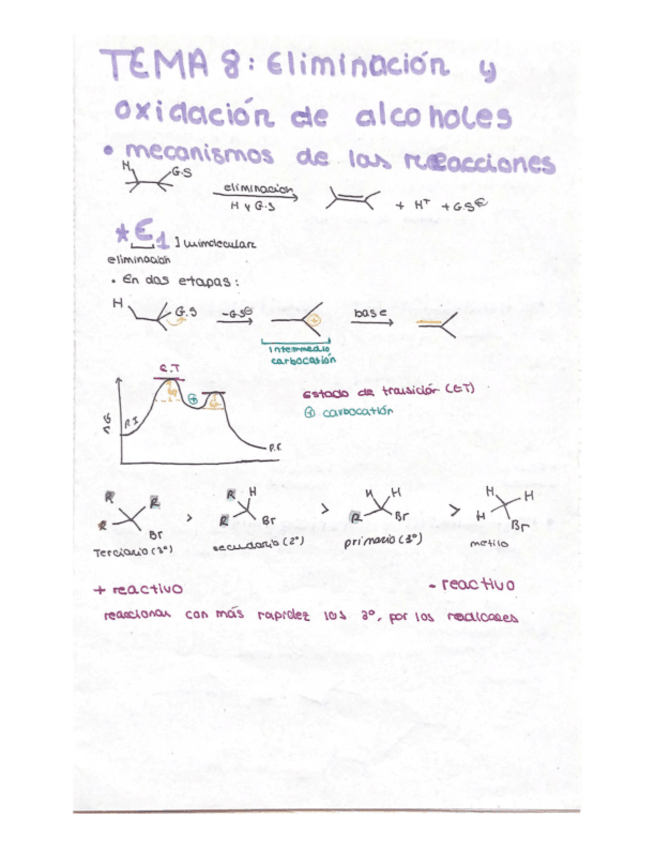 TEMA 8: Eliminación y
oxidación de alcoholes
• mecanismos de las reacciones
H G.S
eliminación
H y G.S
+ H⁺ + G.S⊖
* E1 ] unimolecular
eliminación
• En dos etapas:
H G.S -GS⊖ + base
intermedio
carbocatión
E.T
R.I + P.F
Estado de transición (ET)
⊕ carbocatión
R R R Br > R H R Br > H H R Br > H H H Br
Terciario (3º) secundario (2º) primario (3º) metilo
+ reactivo - reactivo
reaccionan con más rapidez los 3º, por los radicales